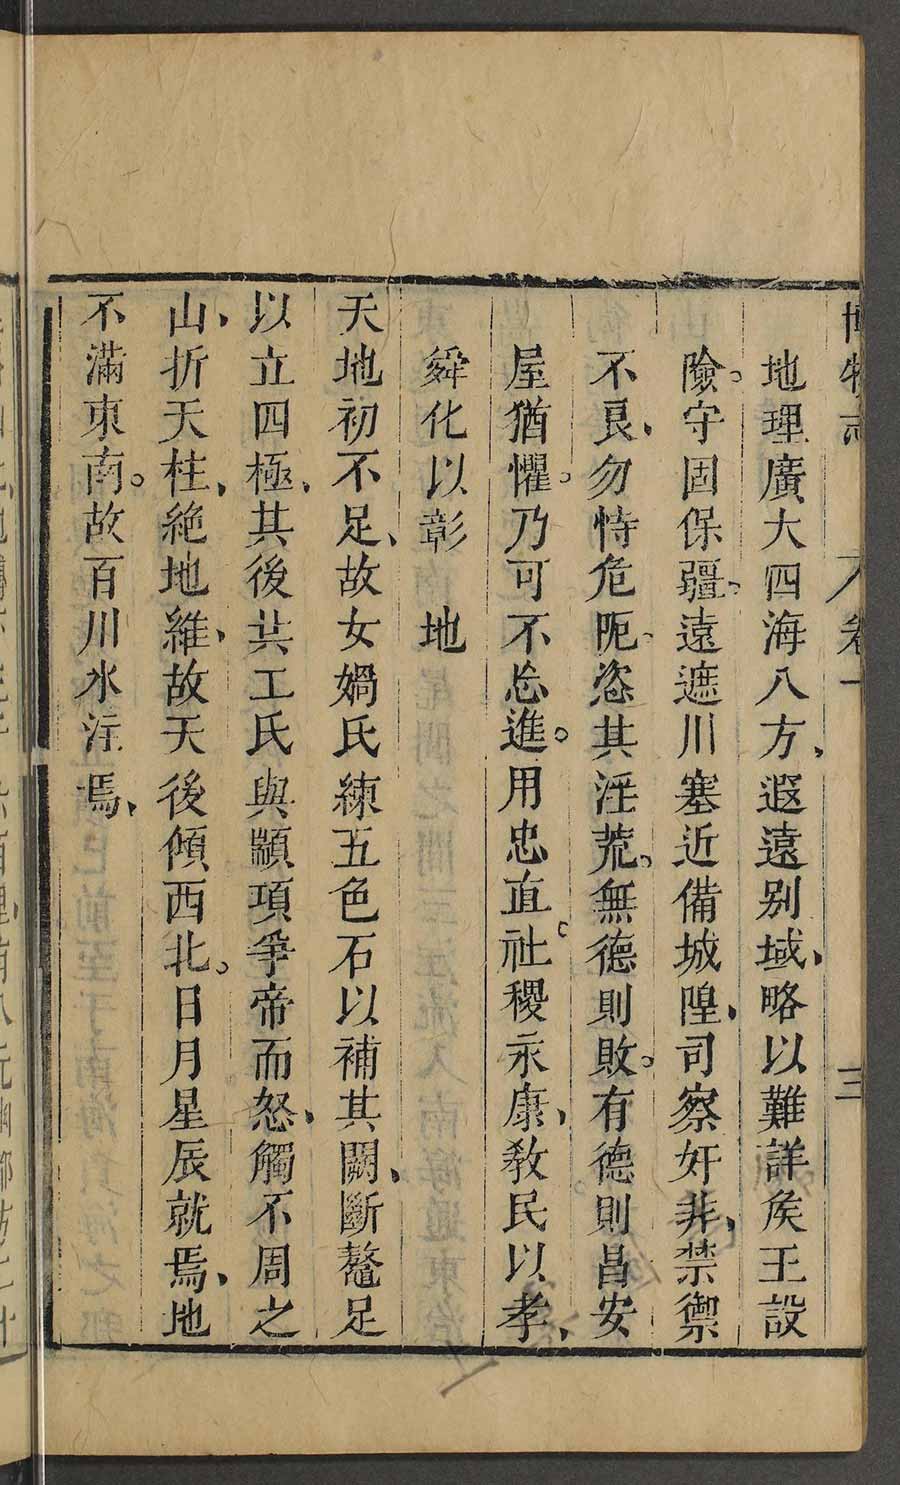 博物志 卷一 三
地理廣大四海八方、遐遠别域、略以難詳矦王設
險。守固保疆、遠遮川塞近備城隍、司察奸非、禁禦
不良、勿恃危阨、恣其淫荒。無德則敗。有德則昌安
屋猶懼。乃可不忘進。用忠直。社稷永康、教民以孝、
舜化以彰 地
天地初不足、故女媧氏練五色石以補其闕、斷鼇足
以立四極、其後共工氏與顓頊爭帝而怒、觸不周之
山、折天柱、絶地維、故天後傾西北。日月星辰就焉、地
不滿東南。故百川水注焉、